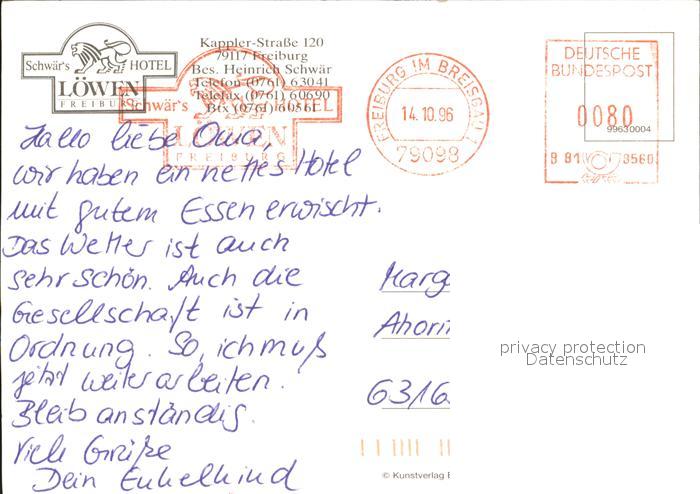 Schwär's HOTEL
LÖWEN
FREIBURG
Kappler-Straße 120
79117 Freiburg
Bes. Heinrich Schwär
Telefon (0761) 63041
Telefax (0761) 60690
Btx (0761) 60561
Schwär's HOTEL
LÖWEN
FREIBURG
FREIBURG IM BREISGAU 1
14.10.96
79098
DEUTSCHE
BUNDESPOST
0080
99630004
B 81 8560
Hallo liebe Oma,
wir haben ein nettes Hotel
mit gutem Essen erwischt.
Das Wetter ist auch
sehr schön. Auch die
Gesellschaft ist in
Ordnung. So, ich muß
jetzt weiter arbeiten.
Bleib anständig.
Viele Grüße
Dein Enkelkind
Marg
Ahorn
6316
privacy protection
Datenschutz
© Kunstverlag E